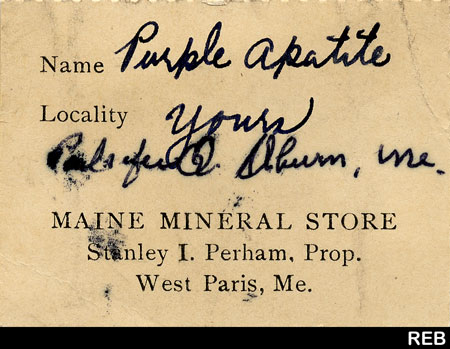 Name Purple Apatite
Locality Yours
Pulsifer Q. Auburn, Me.
MAINE MINERAL STORE
Stanley I. Perham, Prop.
West Paris, Me.
REB